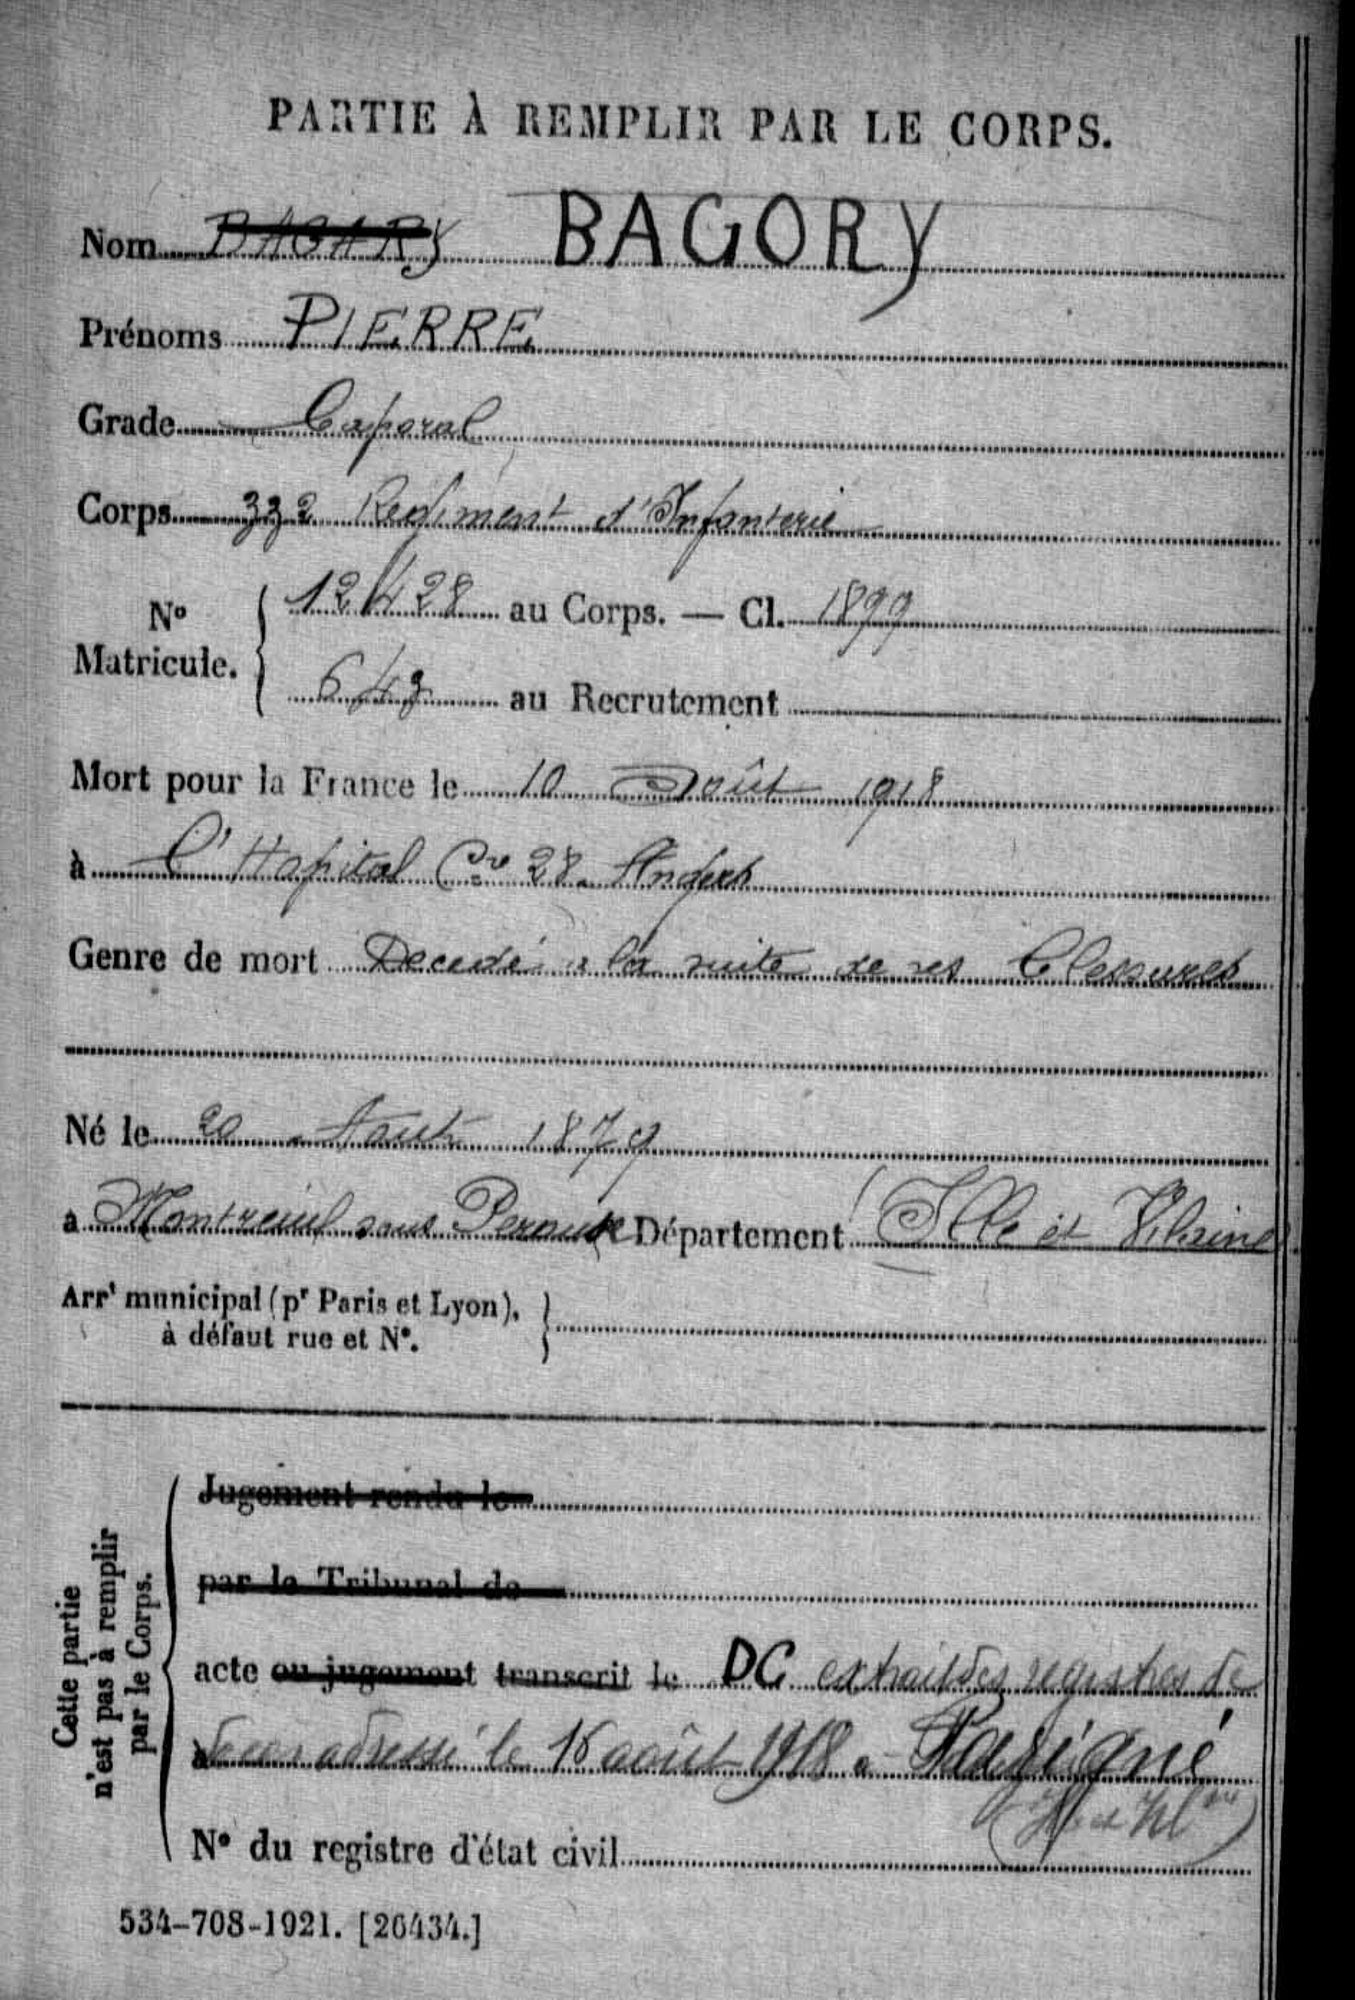 PARTIE À REMPLIR PAR LE CORPS.
Nom BAGARY BAGORY
Prénoms PIERRE
Grade Caporal
Corps 332 Regiment d'Infanterie
N° Matricule. { 12428 au Corps. — Cl. 1899
643 au Recrutement
Mort pour la France le 10 Août 1918
à l'Hopital Cre 28. Angers
Genre de mort Decedé a la suite de ses blessures
Né le 20 Aout 1879
à Montreuil sous Perouse Département Ille et Vilaine
Arrt municipal (pr Paris et Lyon),
à défaut rue et N°.
Cette partie n'est pas à remplir par le Corps.
Jugement rendu le
par le Tribunal de
acte ou jugement transcrit le DC extrait des registres de
à adressé le 16 août 1918 a
N° du registre d'état civil
534-708-1921. [26434.]